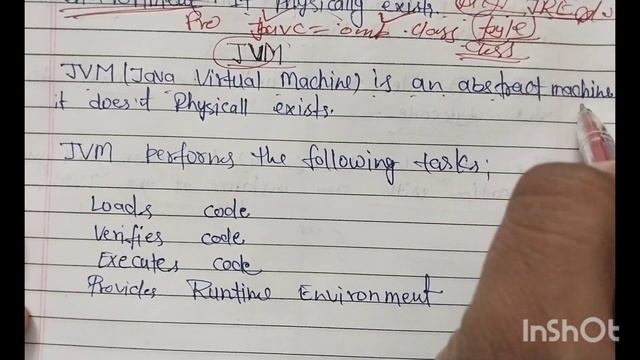 It Physically exists.
Pro Javc = comb .class
class
JVM
JVM (Java Virtual Machine) is an abstract machine
it does't Physicall exists.
JVM performs the following tasks;
Loads code
Verifies code
Executes code
Provides Runtime Environment
InShOt